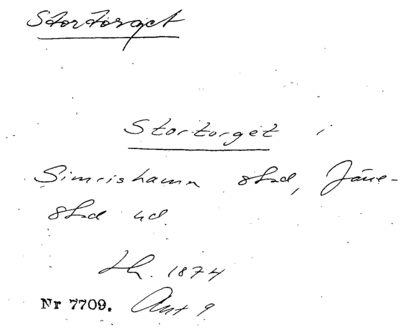 Stortorget
Stortorget i
Simrishamn stad, Järre-
stad hd.
Lh. 1874
Nr 7709. Ant 9